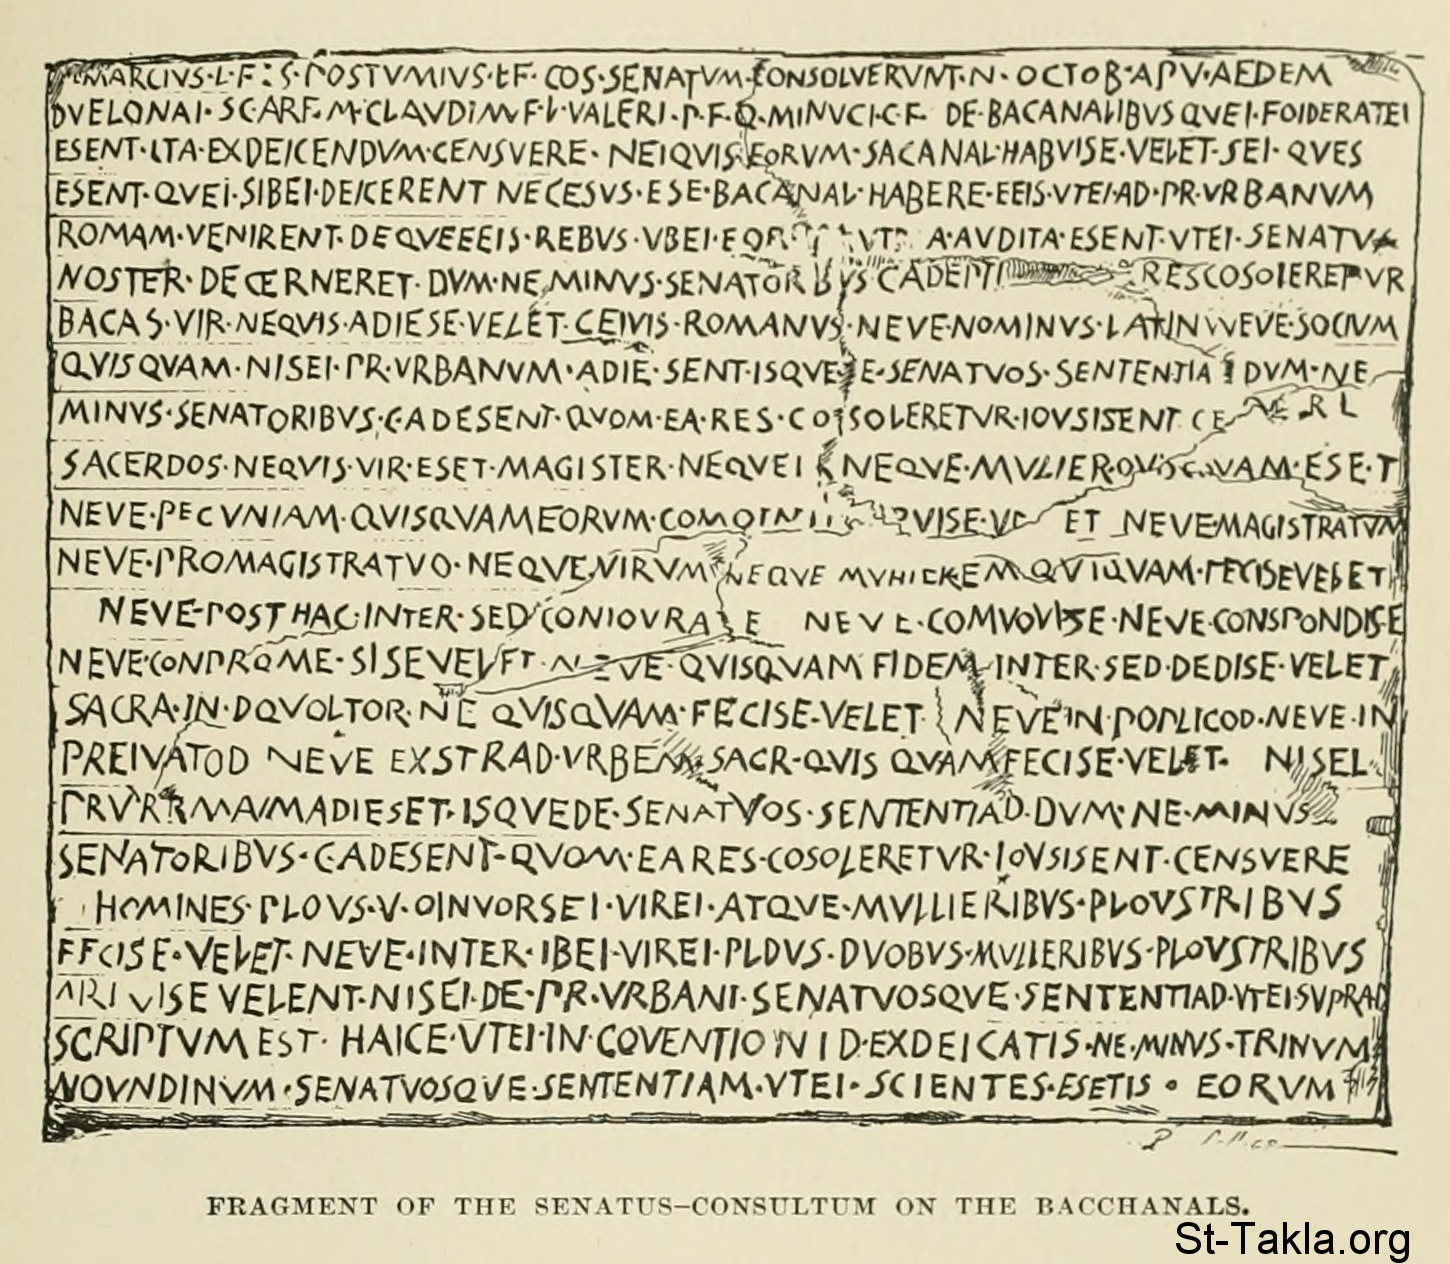 MARCIVS·L·F·S·POSTVMIVS·L·F·COS·SENATVM·CONSOLVERVNT·N·OCTOB·APV·AEDEM
DVELONAI·SC·ARF·M·CLAVDI·M·F·L·VALERI·P·F·Q·MINVCI·C·F· DE·BACANALIBVS QVEI·FOIDERATEI
ESENT·ITA·EXDEICENDVM·CENSVERE· NEIQVIS·EORVM·SACANAL·HABVISE·VELET·SEI· QVES
ESENT·QVEI·SIBEI·DEICERENT NECESVS·ESE·BACANAL·HABERE·EEIS·VTEI·AD·PR·VRBANVM
ROMAM·VENIRENT·DEQVEEEIS·REBVS·VBEI·EOR VTR A·AVDITA·ESENT·VTEI·SENATV
NOSTER·DECERNERET·DVM·NE·MINVS·SENATORIBVS CADENT RESCOSOLERETVR
BACAS·VIR·NEQVIS·ADIESE·VELET·CEIVIS·ROMANVS·NEVE·NOMINVS·LATIN NEVE·SOCIVM
QVISQVAM·NISEI·PR·VRBANVM·ADIE·SENT·ISQVE E·SENATVOS·SENTENTIA DVM·NE
MINVS·SENATORIBVS·C·ADESENT·QVOM·EA·RES·COSOLERETVR·IOVSISENT CE
SACERDOS·NEQVIS·VIR·ESET·MAGISTER·NEQVE NEQVE·MVLIER·QVISQVAM·ESE·T
NEVE·PECVNIAM·QVISQVAMEORVM·COMOIN VISE·V ET NEVE·MAGISTRATVM
NEVE·PROMAGISTRATVO·NEQVE·VIRVM NEQVE MVHICKEM QVIQVAM·FECISEVELET
NEVE·POST HAC·INTER·SED·CONIOVRA E NEVE·COMVOVISE·NEVE·CONSPONDISE
NEVE·CONPROME·SISEVELET·NEVE·QVISQVAM FIDEM INTER·SED·DEDISE·VELET
SACRA·IN·DQVOLTOR·NE QVISQVAM·FECISE·VELET NEVE IN·POPLICOD·NEVE·IN
PREIVATOD NEVE EXSTRAD·VRBEM SACR·QVIS QVAM FECISE·VELET· NISEI
PRVR MA MADIESET·ISQVEDE·SENATVOS·SENTENTIAD·DVM·NE·MINVS
SENATORIBVS·C·ADESENT·QVOM·EA RES·COSOLERETVR·IOVSISENT·CENSVERE
HOMINES·PLOVS·V·OINVORSEI·VIREI·ATQVE·MVLLIERIBVS·PLOVSTRIBVS
FFCISE·VELET·NEVE·INTER·IBEI·VIREI·PLDVS·DVOBVS·MVLIERIBVS·PLOVSTRIBVS
ARI VISE VELENT·NISEI·DE·PR·VRBANI·SENATVOSQVE·SENTENTIAD·VTEI·SVPRAD
SCRIPTVM EST· HAICE·VTEI·IN·COVENTIONID·EXDEICATIS·NE·MINVS·TRINVM
NOVNDINVM·SENATVOSQVE·SENTENTIAM·VTEI·SCIENTES·ESETIS· EORVM
FRAGMENT OF THE SENATUS–CONSULTUM ON THE BACCHANALS.
St-Takla.org